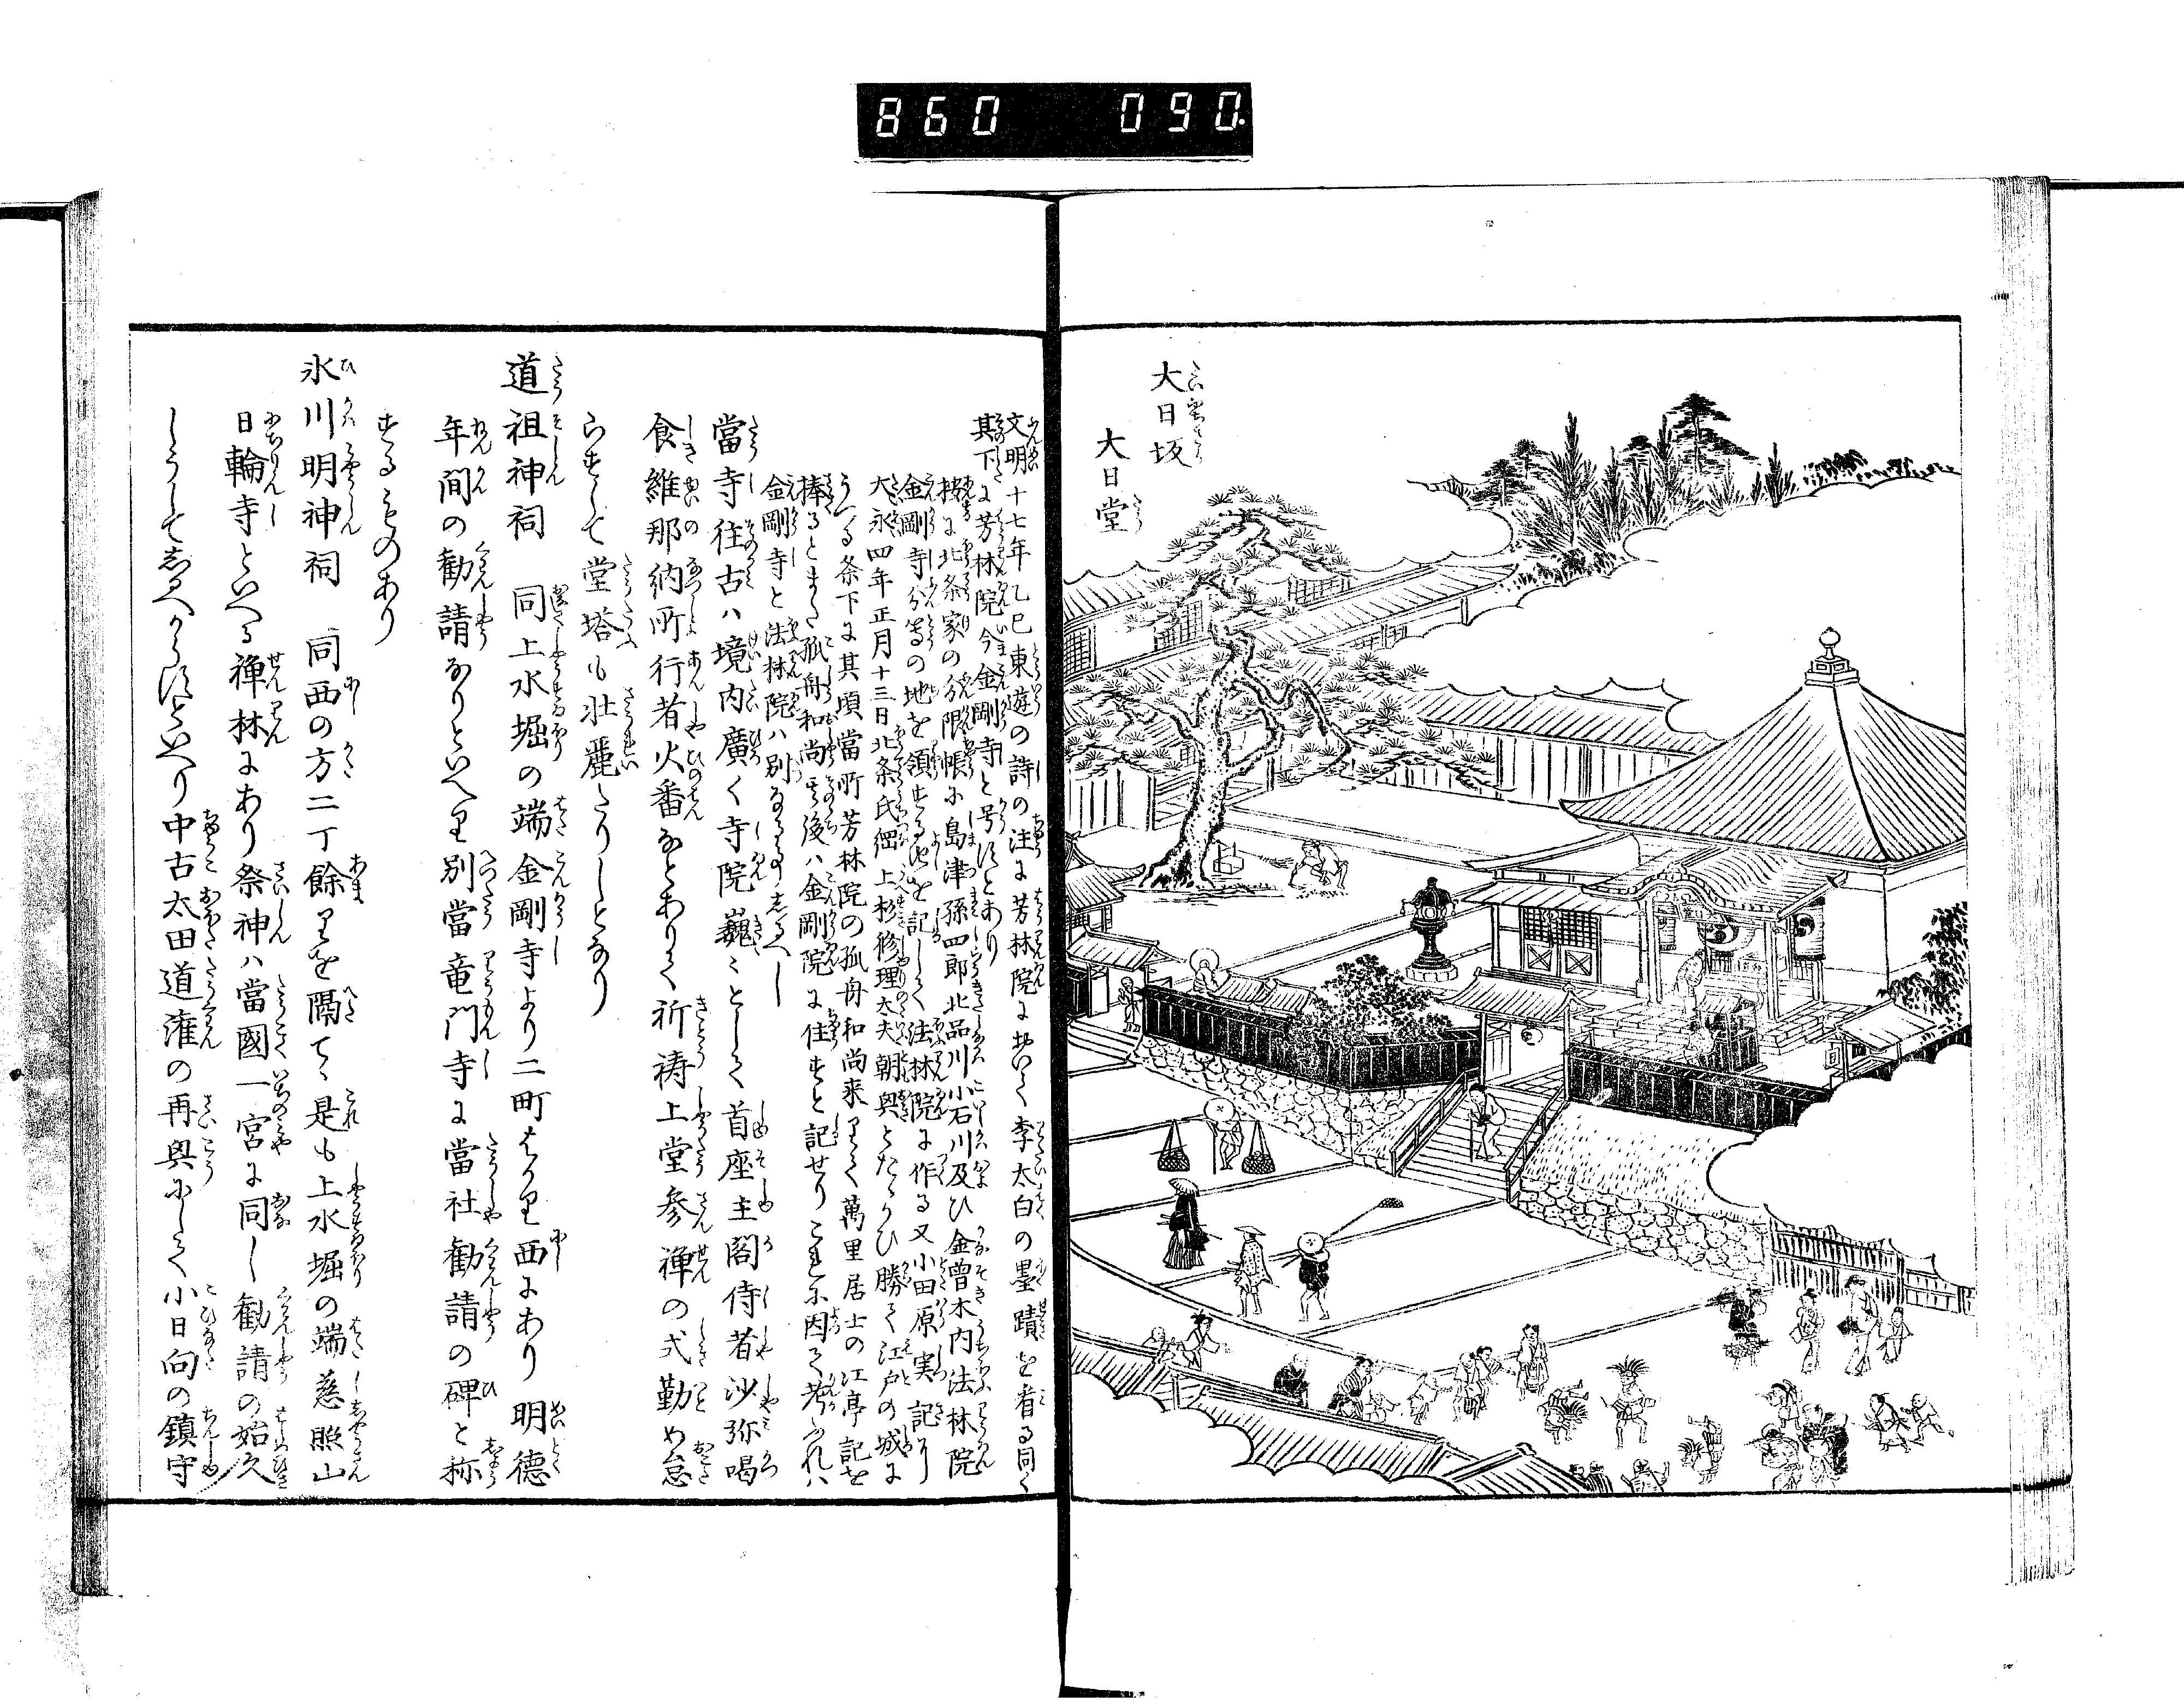 860 090.
大日坂
大日堂
文明十七年乙巳東遊の詩の注に芳林院において李太白の墨蹟を看る同く
其下に芳林院今金剛寺と号すとあり
按に北条家の分限帳に島津孫四郎北品川小石川及ひ金曽木内法林院
金剛寺分等の地を領する由を記して法林院に作る又小田原実記に
大永四年正月十三日北条氏綱上杉修理太夫朝興とたゝかひ勝て江戸の城に
うつる条下に其頃當所芳林院の孤舟和尚来りて萬里居士の江亭記を
捧るとまた孤舟和尚其後ハ金剛院に住すと記せりこれに因て考ふれハ
金剛寺と法林院ハ別なる事しるへし
當寺往古ハ境内廣く寺院巍〻として首座主閣侍者沙弥喝
食維那納所行者火番なとありて祈祷上堂参禅の式勤め怠
らすして堂塔も壮麗たりしとなり
道祖神祠 同上水堀の端金剛寺より二町はかり西にあり明徳
年間の勧請なりといへり別當竜門寺に當社勧請の碑と称
するものあり
氷川明神祠 同西の方二丁餘りを隔てゝ是も上水堀の端慈照山
日輪寺といへる禅林にあり祭神ハ當國一宮に同し勧請の始久
しうしてしるへからすといへり中古太田道潅の再興にして小日向の鎮守